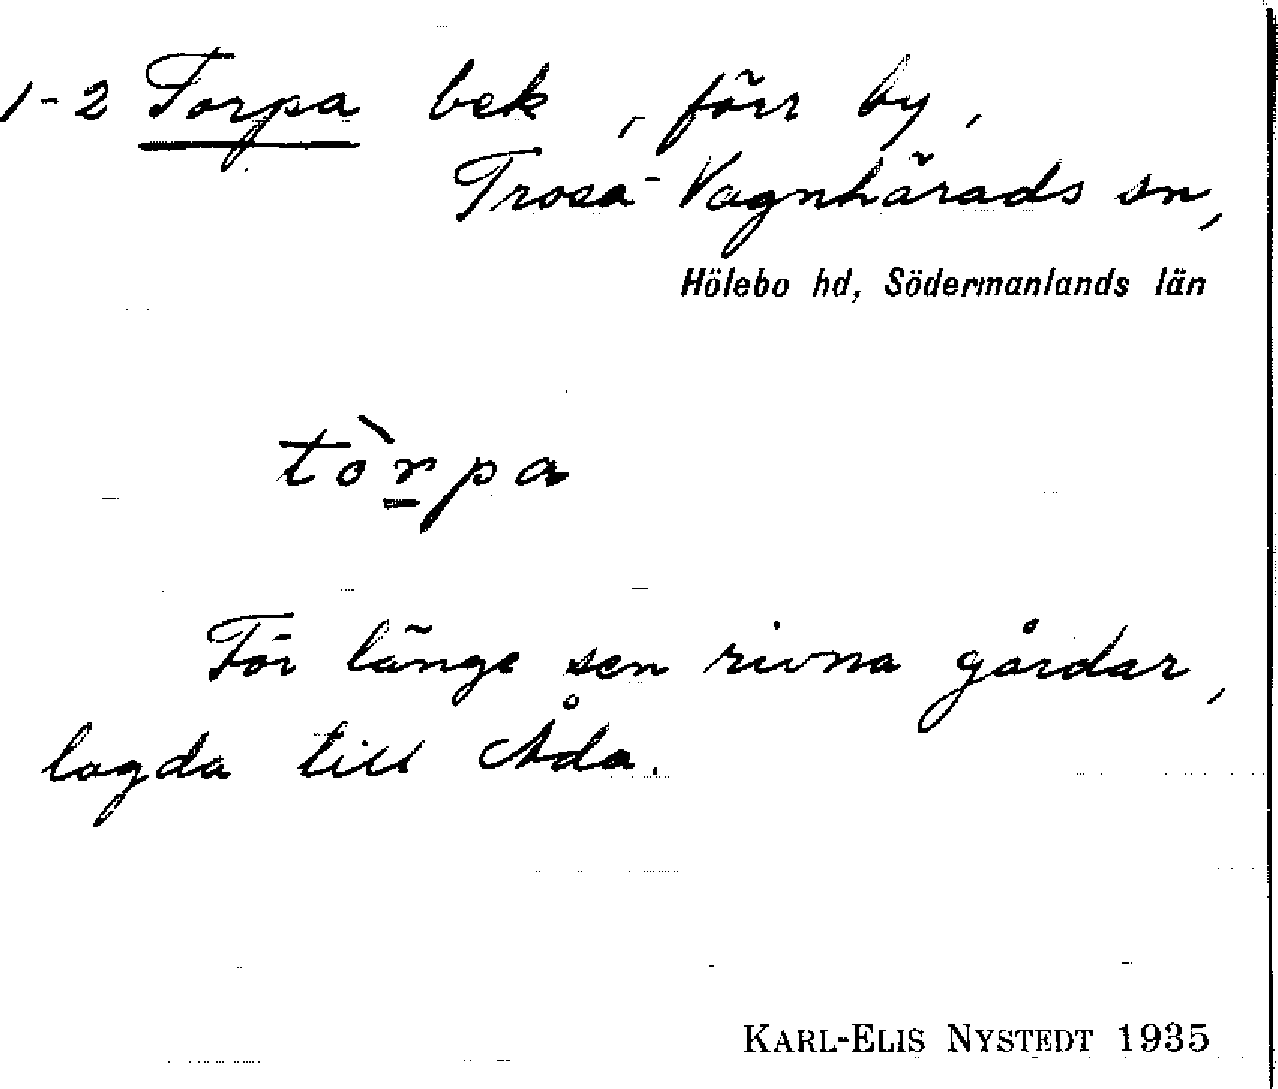 1-2 Torpa bek, förr by,
Trosa-Vagnhärads sn,
Hölebo hd, Södermanlands län
tòrpa
För länge sen rivna gårdar,
lagda till Åda.
KARL-ELIS NYSTEDT 1935